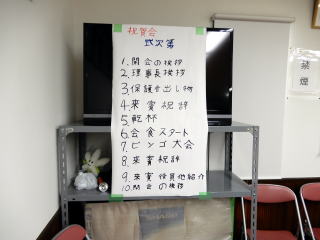 祝賀会
式次第
1.開会の挨拶
2.理事長挨拶
3.保護者出し物
4.来賓祝辞
5.乾杯
6.会食スタート
7.ビンゴ大会
8.来賓祝辞
9.来賓役員他紹介
10.閉会の挨拶
禁煙